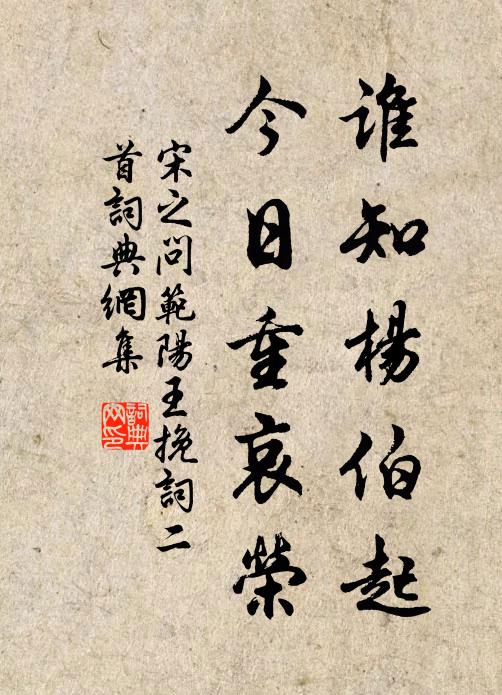 誰知楊伯起
今日重哀榮
宋之問範陽王挽詞二
首詞典網集
詞典
网印